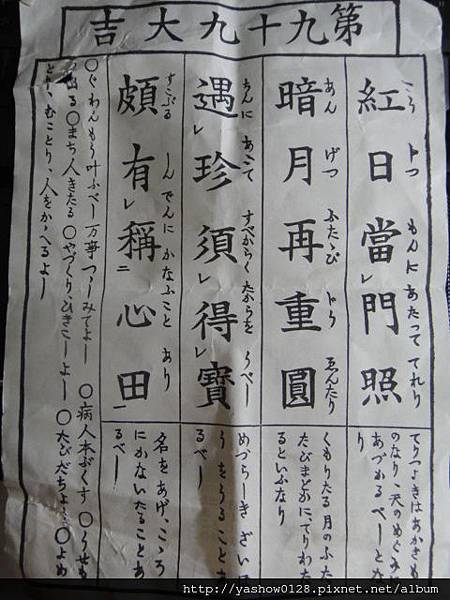 第九十九大吉
紅日當レ門照
こう じつ もんに あたって てれり
てりつよきはあかきも
のなり、天のめぐみ
あづかるべしとな
り
暗月再重圓
あん げつ ふたゝび ゑんたり
くもりたる月のふた
たびまどかに、てりわた
るといふなり
遇レ珍須レ得レ寶
ちんに あふて すべからく たからを うべし
めづらしきざい
うをうることあ
るべし
頗有レ稱二心田一
すこぶる しんでんに かなふこと あり
名をあげ、こゝろ
にかないたることあ
るべし
〇ぐわんもう叶ふべし 万事つゝしみてよし 〇病人本ぶくす 〇うせも
出る 〇まち人きたる 〇やづくり、ひきこしよし 〇たびだちよし 〇よめ
とり、むことり、人をかゝへるよし
http://yashow0128.pixnet.net/album